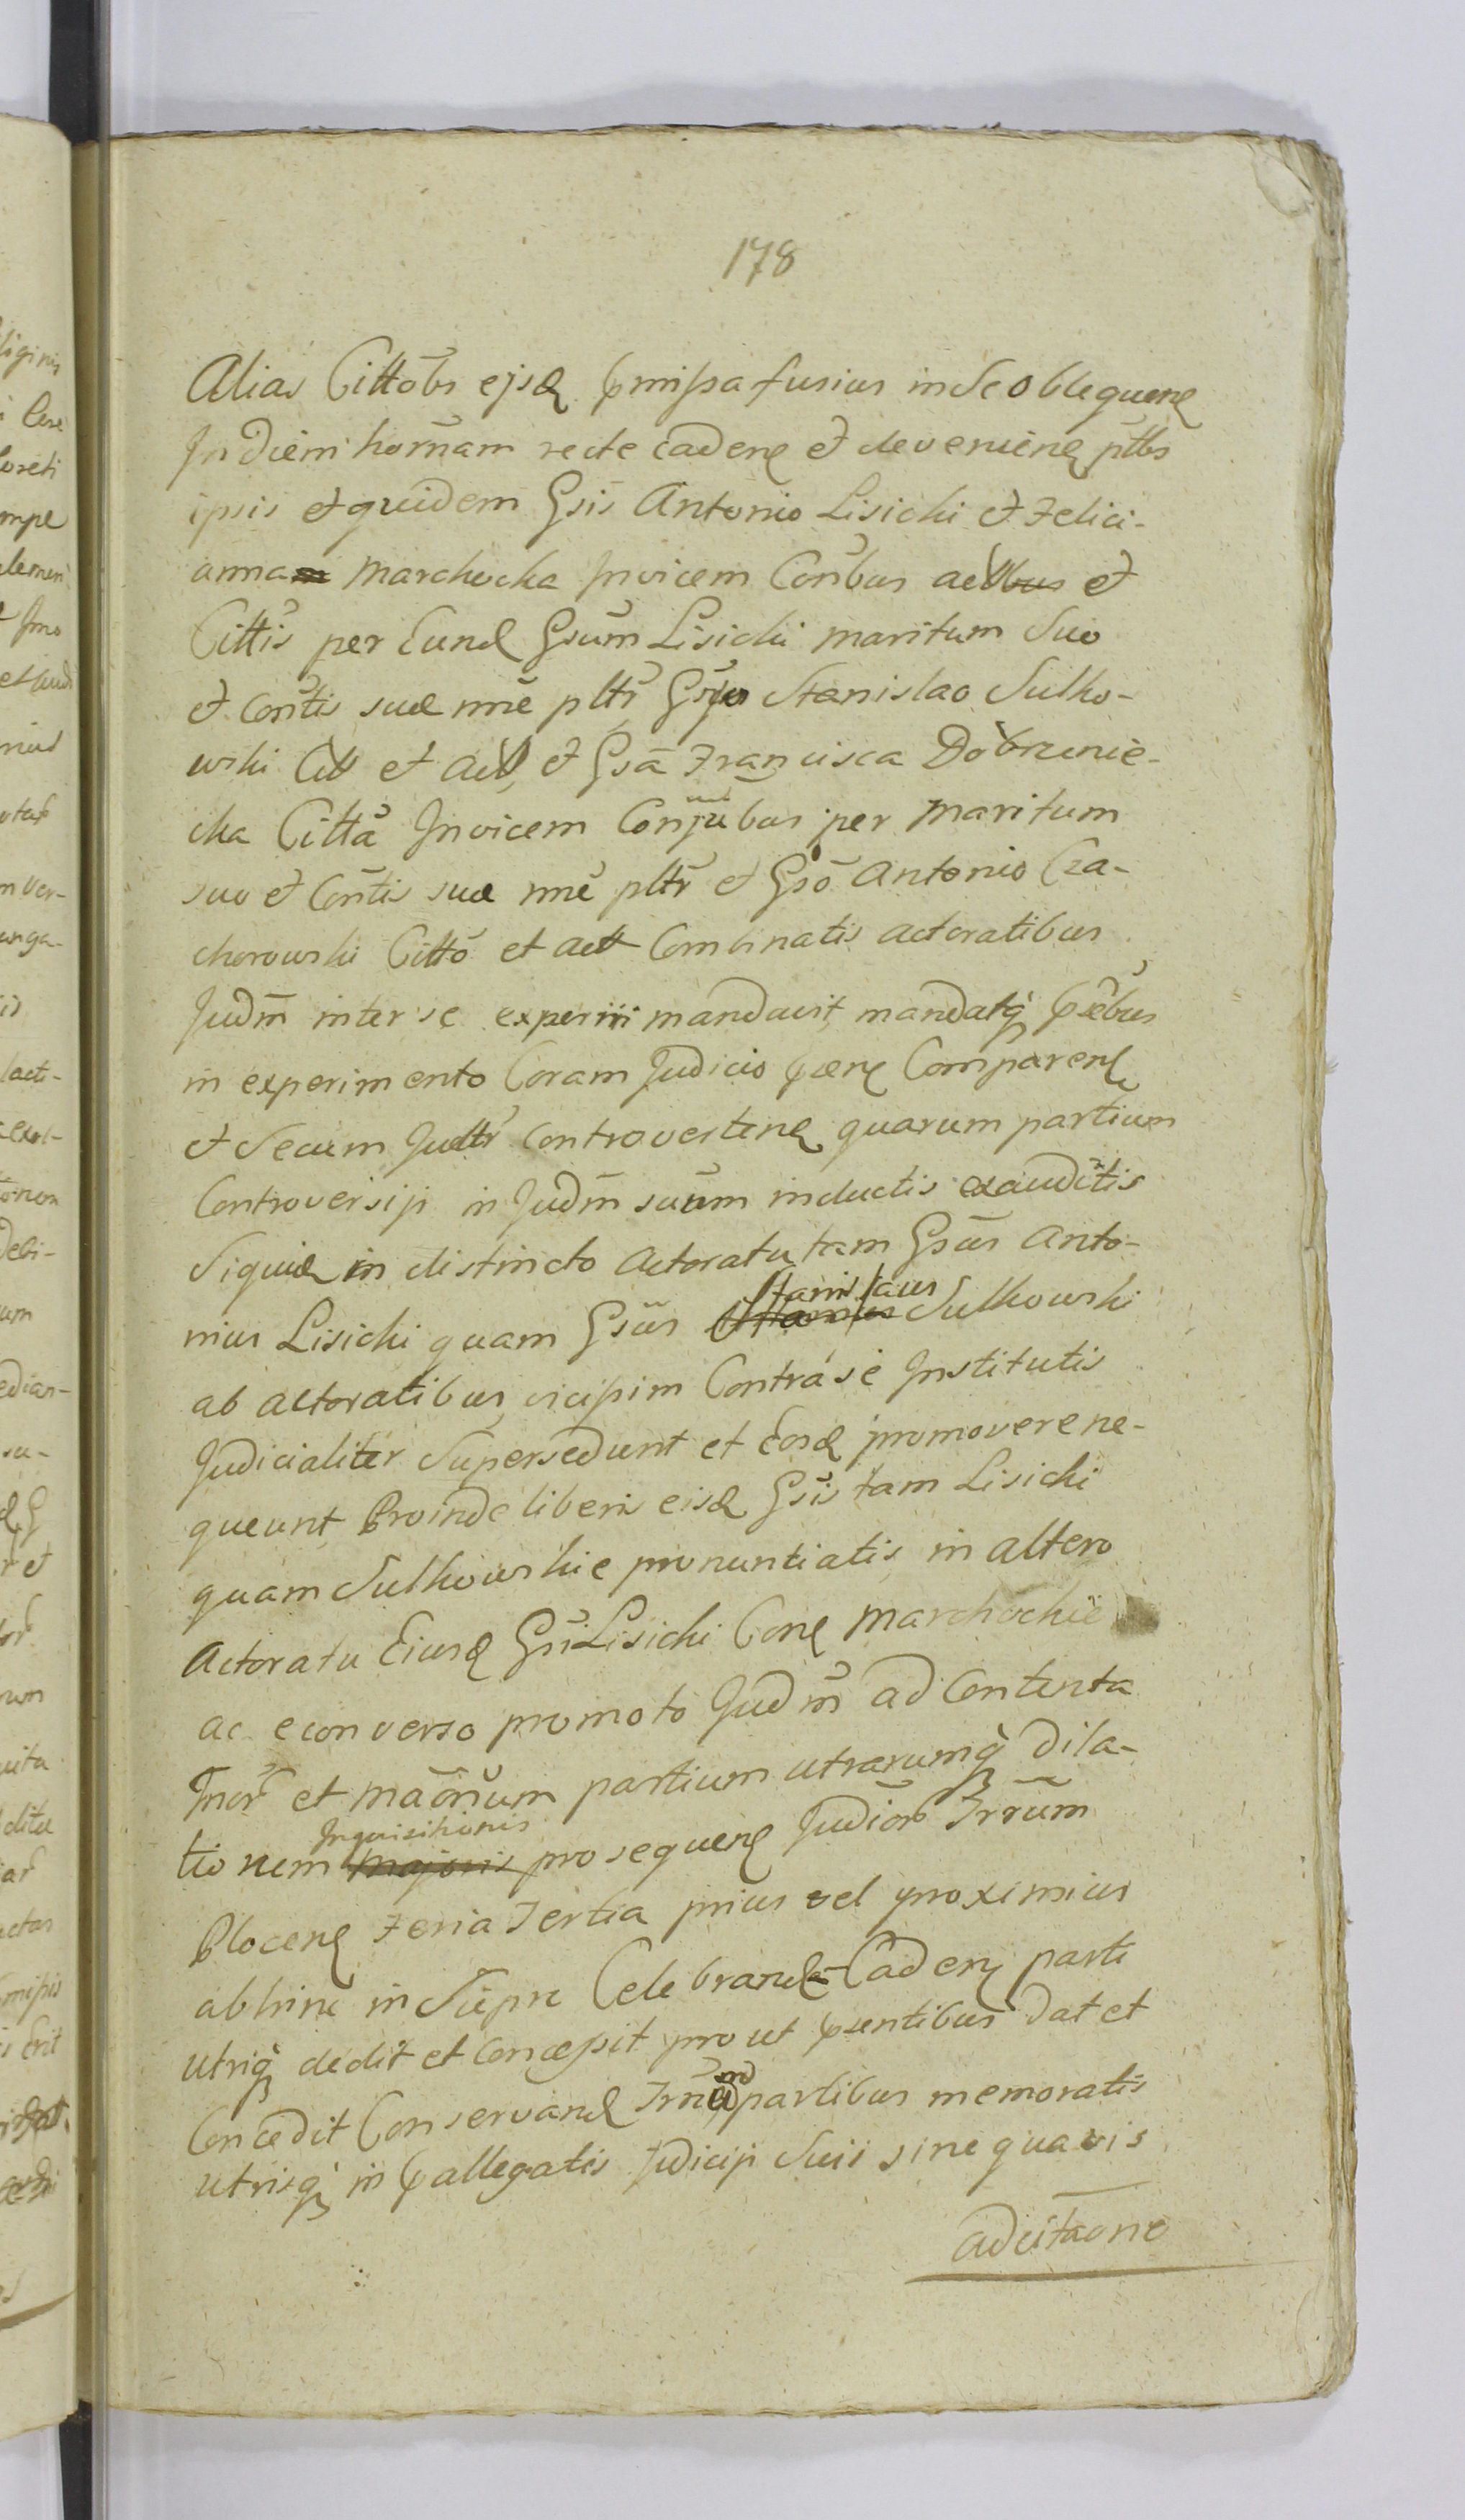 178
Alias Cittōbs ejsd pmissa fusius in Se oblequen
In diem horñam recte caden et devenien ptbs
ipsis et quidem Gsis Antonio Lisicki et Felici-
anna Marchocka Invicem Conbus actt et
Cittis per Eund Gsum Lisicki maritum Suo
et Contis suæ nnẽ pltr Gso Stanislao Sulko-
wski Citt et Act, et Gsã Francisca Dobrzenie-
cka Cittã Invicem Conjubus per Maritum
suo et Contis suæ nnẽ pltr et Gsõ Antonio Cza-
chorowski Cittõ et Act Combinatis actoratibus
Judm̃ inter se experiri mandavit, mandatq pñbus
in experimento Coram Judicio pñn Comparen
et Secum Judtr Controverten quarum partium
Controversiji in Judm̃ suũm inductis exauditis
Siquid in distincto Actoratu tam Gsus Anto-
nius Lisicki quam Gsus Stanislaus Sulkowski
ab actoratibus vicissim Contra se Institutis
Judicialiter Supersedunt et Eosd promovere ne-
queunt, Proinde liberis eisd Gsis tam Lisicki
quam Sulkowskie pronuntiatis, in altero
Actoratu Eiusd Gsi Lisicki Con Marchockie
ac econverso promoto Judm̃ ad Contenta
Inor et mãonum partium utrarumq dila-
tionem Inquisitionis prosequen Judior Trrum
Plocen Feria Tertia prius vel proximius
abhinc in Suepre Celebrand Caden parti
utriq dedit et Concessit prout psentibus dat et
Concedit Conservand Trno partibus memoratis
utrisq in pallegatis Judiciji Suii sine quavis
adcitaone